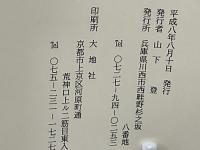 平成八年八月十日　発行
発行者　山下　登
発行所　兵庫県川西市西畦野杉之坂
八番地
Tel　〇七二七-九四-〇二五三
印刷所　大地社
京都市上京区河原町通
荒神口上ル二筋目東入
Tel　〇七五-二三一-一七二